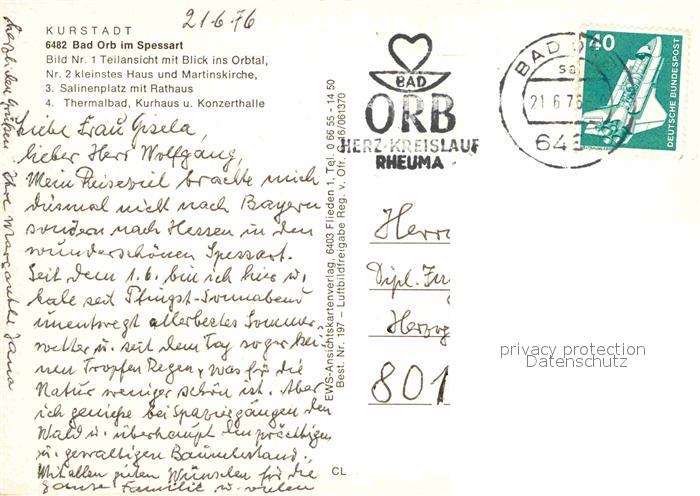 21.6.76
KURSTADT
6482 Bad Orb im Spessart
Bild Nr. 1 Teilansicht mit Blick ins Orbtal,
Nr. 2 kleinstes Haus und Martinskirche,
3. Salinenplatz mit Rathaus
4. Thermalbad, Kurhaus u. Konzerthalle
Liebe Frau Gisela,
lieber Herr Wolfgang,
Mein Reiseziel brachte mich
diesmal nicht nach Bayern
sondern nach Hessen in den
wunderschönen Spessart.
Seit dem 1.6. bin ich hier u.
habe seit Pfingst-Sonnabend
unentwegt allerbestes Sommer-
wetter u. seit dem Tag sogar kei-
nen Tropfen Regen, was für die
Natur weniger schön ist. Aber
ich genieße bei Spaziergängen den
Wald u. überhaupt den prächtigen
u. gewaltigen Baumbestand.
Mit allen guten Wünschen für die
ganze Familie u. vielen
herzlichen Grüßen Ihre Margarethe
EWS-Ansichtskartenverlag, 6403 Flieden 1, Tel. 0 66 55 - 14 50
Best. Nr. 197 – Luftbildfreigabe Reg. v. Ofr. 16/061370
CL
BAD
ORB
HERZ-KREISLAUF
RHEUMA
BAD
21.6.76
40
DEUTSCHE BUNDESPOST
Herrn
Dipl. Ing
Herzog
801
privacy protection
Datenschutz